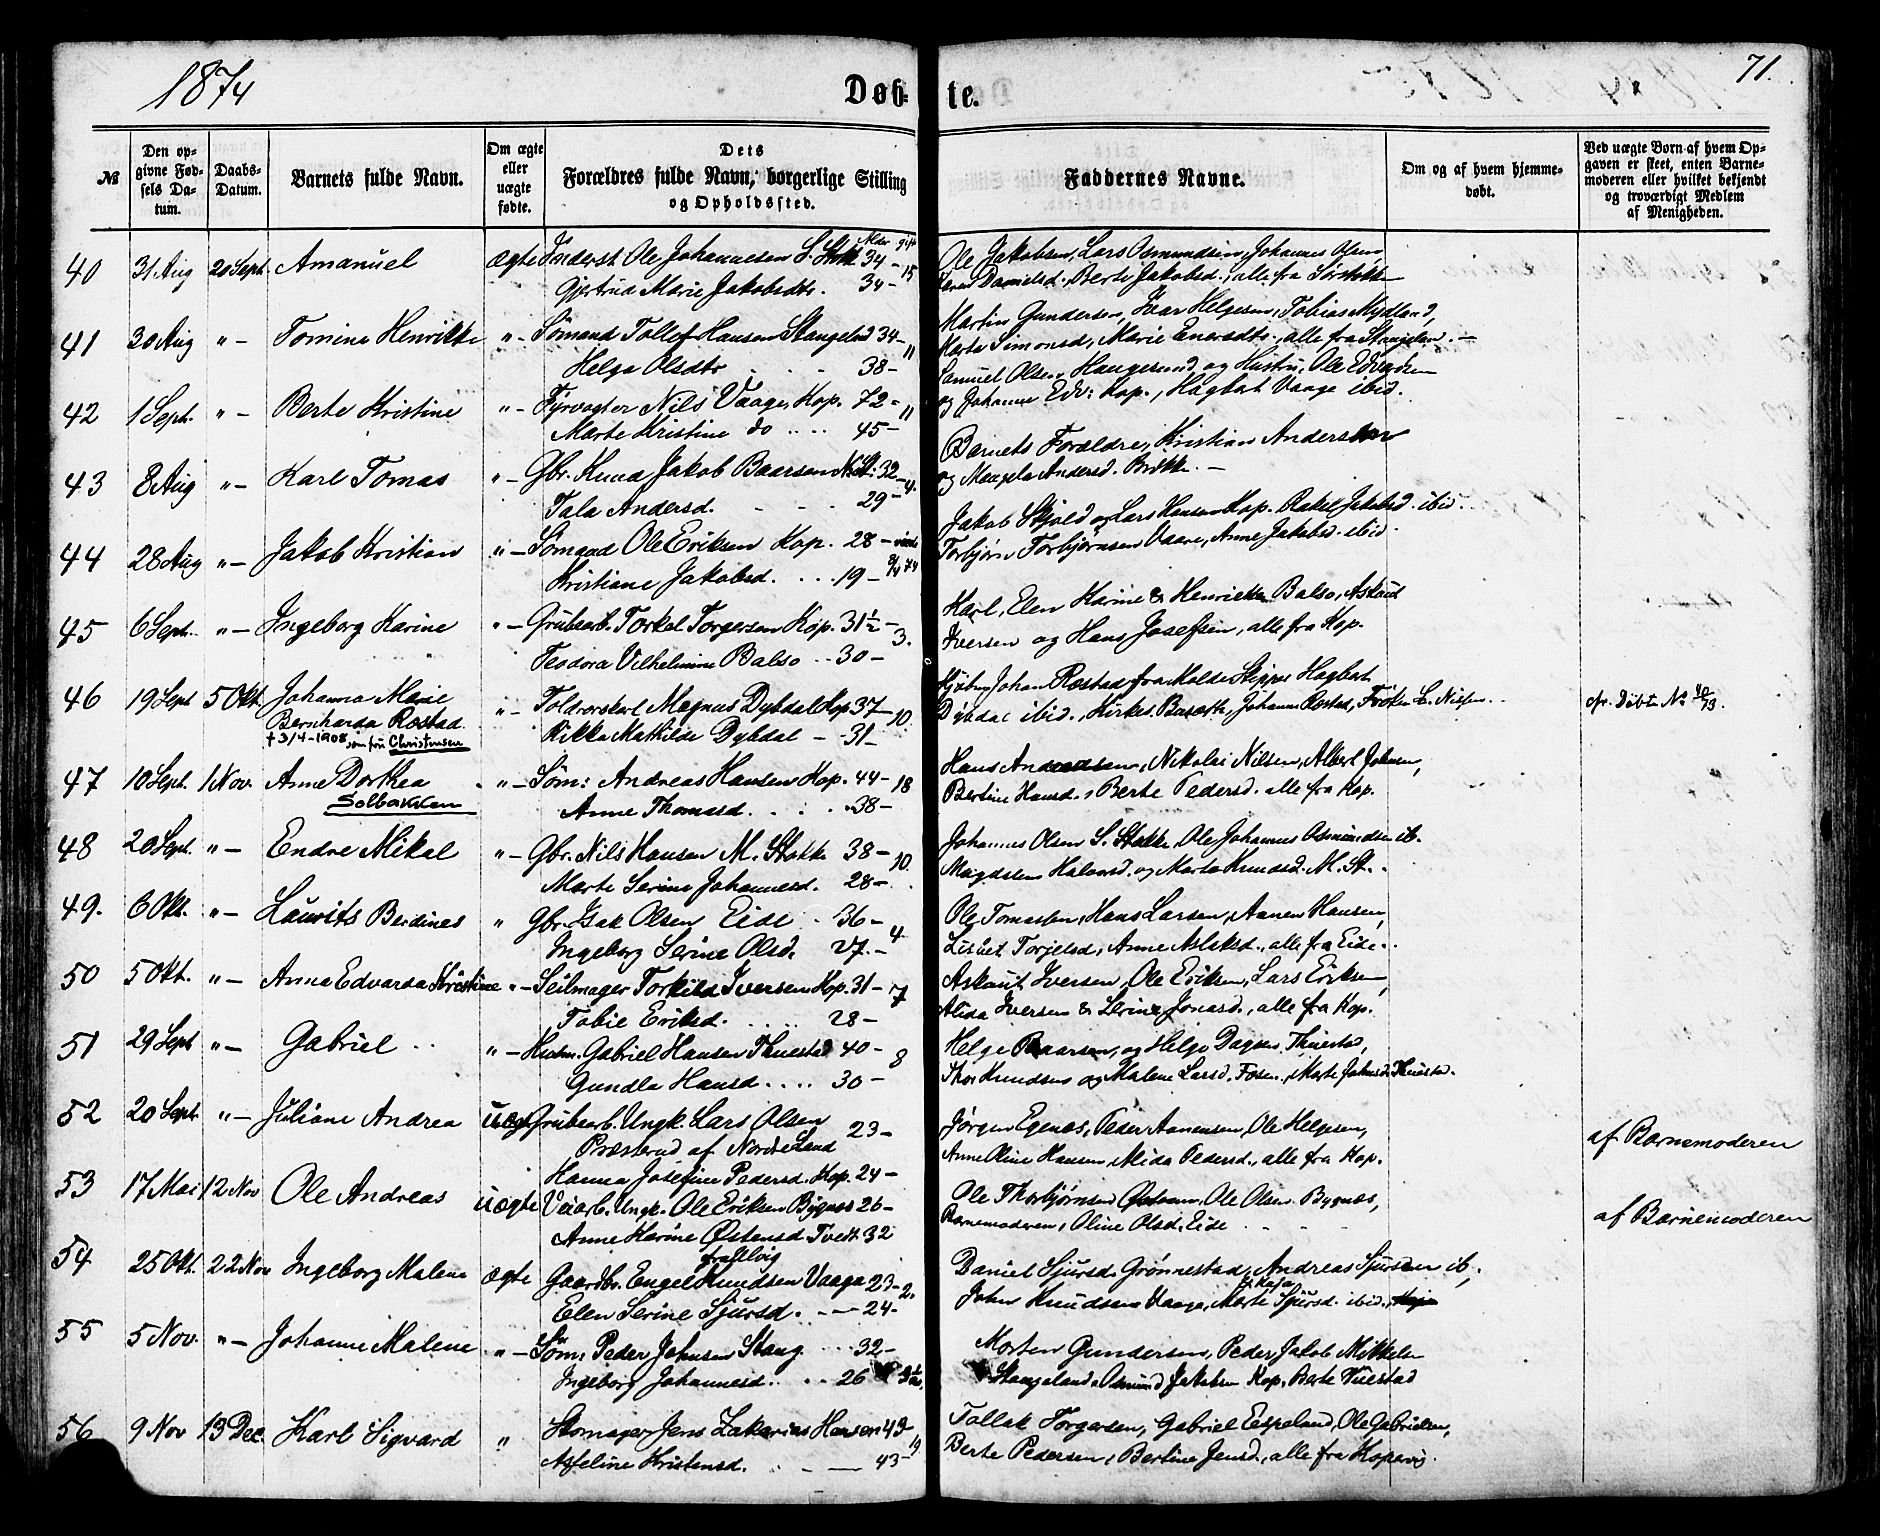 1874
Døbte.
71.
№
Den opgivne Fødsels Datum.
Daabs-Datum.
Barnets fulde Navn.
Om ægte eller uægte fødte.
Dets Forældres fulde Navn, borgerlige Stilling og Opholdssted.
Faddernes Navne.
Om og af hvem hjemmedøbt.
Ved uægte Børn af hvem Opgaven er skeet, enten Barnemoderen eller hvilket bekjendt og troværdigt Medlem af Menigheden.
40 31 Aug 20 Sept. Amanuel ægte Inderst Ole Johannesen S. Stokke 34 - 15
Gjertrud Marie Jakobsdtr. 34 -
Ole Jakobsen, Lars Osmundsen, Johannes Olsen,
Danielsd., Berte Jakobsd., alle fra Sørstokke
41 30 Aug " - Tomine Henrikke " - Sömand Tollef Hansen Stangeland 34 - 11
Helga Olsdtr . . . 38 -
Martin Gundersen, Ivar Helgesen, Tobias Mydland,
Marta Simonsd, Marie Enersdtr., alle fra Stangeland. -
42 1 Sept. " - Berte Kristine " - Fyrvogter Nils Vaage, Kop. 72 - 11
Marte Kristine do .... 45 -
Samuel Olsen, Haugesund, og Hustru, Ole Edvardsen
og Johanne Edv: Kop., Hagbart Vaage ibid.
43 8 Aug " - Karl Tomas " - Gbr. Knud Jakob Baarsen 32 - 4.
Tala Andersd. - - - 29 -
Barnets Forældre, Kristian Andersen
og Mangela Andersd. Brekke. -
44 28 Aug " - Jakob Kristian " - Sömand Ole Eriksen Kop. 28 - viede
Kristiane Jakobsd. . . . 19 - 74
Jakob Skjold og Lars Hansen Kop. Rakel Jakobsd. ibid.
Torbjørn Torbjørnsen Vaare, Anne Jakobsd. ibid.
45 6 Sept. " - Ingeborg Karine " - Grubearb. Torkel Torgersen Kop. 31½ - 3.
Teodora Vilhelmine Balso .. 30 -
Karl, Elen Karine & Henrikke Balso, Askaut
Iversen og Hans Josefsen, alle fra Kop.
46 19 Sept 5 Okt. Johanna Marie " - Toldrorskarl Magnus Dybdal Kop 37 - 10.
Bernharda Rostad
† 3/4 - 1908 som fru Christensen
Rikka Mathilde Dybdal - - 31 -
Johan Røstad fra Molde, Skipper Hagbart
Dybdal ibid., Kirkes. Johanne Rostad, Frøken L. Nilsen . . cfr. Døbte № 40/73.
47 10 Sept. 1 Nov. Anne Dorthea " - Söm: Andreas Hansen Kop. 44 - 18
Solbakken
Anne Thomasd. . . . 38 -
Hans Andreassen, Nikolai Nilsen, Albert Johnsen,
Bertine Hansd., Berte Pedersd. alle fra Kop.
48 20 Sept. " - Endre Mikal " - Gbr. Nils Hansen M. Stokke 38 - 10.
Marte Serine Johannesd. 28 -
Johannes Olsen S. Stokke, Ole Johannes Osmundsen ib.
Magdalena Halvorsd. og Marta Knudsd. M. St..
49. 6 Okt. " - Laurits Berdines " Gbr. Isak Olsen Eide . 36 - 4
Ingeborg Serine Olsd. 27. -
Ole Tomassen, Hans Larsen, Aanen Hansen,
Lisbet Torjelsd, Anne Aslaksd., alle fra Eide..
50 5 Okt. " - Anna Edvarda Kristine " - Seilmager Torkild Iversen Kop. 31 - 7
Tobie Eriksd. . . . . . 28 -
Askaut Iversen, Ole Eriksen, Lars Eriksen,
Alida Iversen & Serine Jonasd., alle fra Kop.
51 29 Sept " - Gabriel . . " - Husm. Gabriel Hansen Thuestad 40 - 8
Gundla Hansd. . . . . 30 -
Helge Baarsen, og Helge Dagsen Thuestad,
Thor Knudsen og Malene Larsd. Fosen, Marte Johnsd. Thuestad.
52 20 Sept. " - Juliane Andrea uægte Grubearb. Ungk. Lars Olsen
Præsterud af Nordre Land 23 -
Hanna Josefine Pedersd. Kop. 24 -
Jørgen Egenæs, Peder Aanensen, Ole Helgesen,
Anne Oline Hansen, Mida Pedersd., alle fra Kop.
af Barnemoderen
53 17 Mai 12 Nov Ole Andreas uægte Veiarb. Ungk. Ole Eriksen Bygnæs 26 -
Anne Karine Østensd Tvedt 32
fra Ølvig
Ole Thorbjørnsen Ole Olsen Bygnæs,
Barnemoderen, Oline Olsd. Eide
af Barnemoderen
54 25 Okt. 22 Nov Ingeborg Malene ægte Gaardbr. Engel Knudsen Vaaga 23 - 2.
Elen Serine Sjursd. . - - 24 -
Daniel Sjursd. Grønnestad, Andreas Sjursen ib.,
John Knudsen Vaage, Marte Sjursd. ibid.
55 5 Nov. " - Johanne Malene " - Söm: Peder Johnsen Stang . . . 32 -
Ingeborg Johannesd. . . . 26
Morten Gundersen, Peder, Jakob Mikkelsen
Stangeland, Osmund Jakobsen Kop, Berte Tuestad
56 9 Nov 13 Dec Karl Sigvard " Skomager Jens Zakarias Hansen 43 - 19
Asseline Kristensd. - - - 43 -
Tollak Torgersen, Gabriel Espeland, Ole Gabrielsen,
Berte Pedersen, Bertine Jensd., alle fra Kopervig.